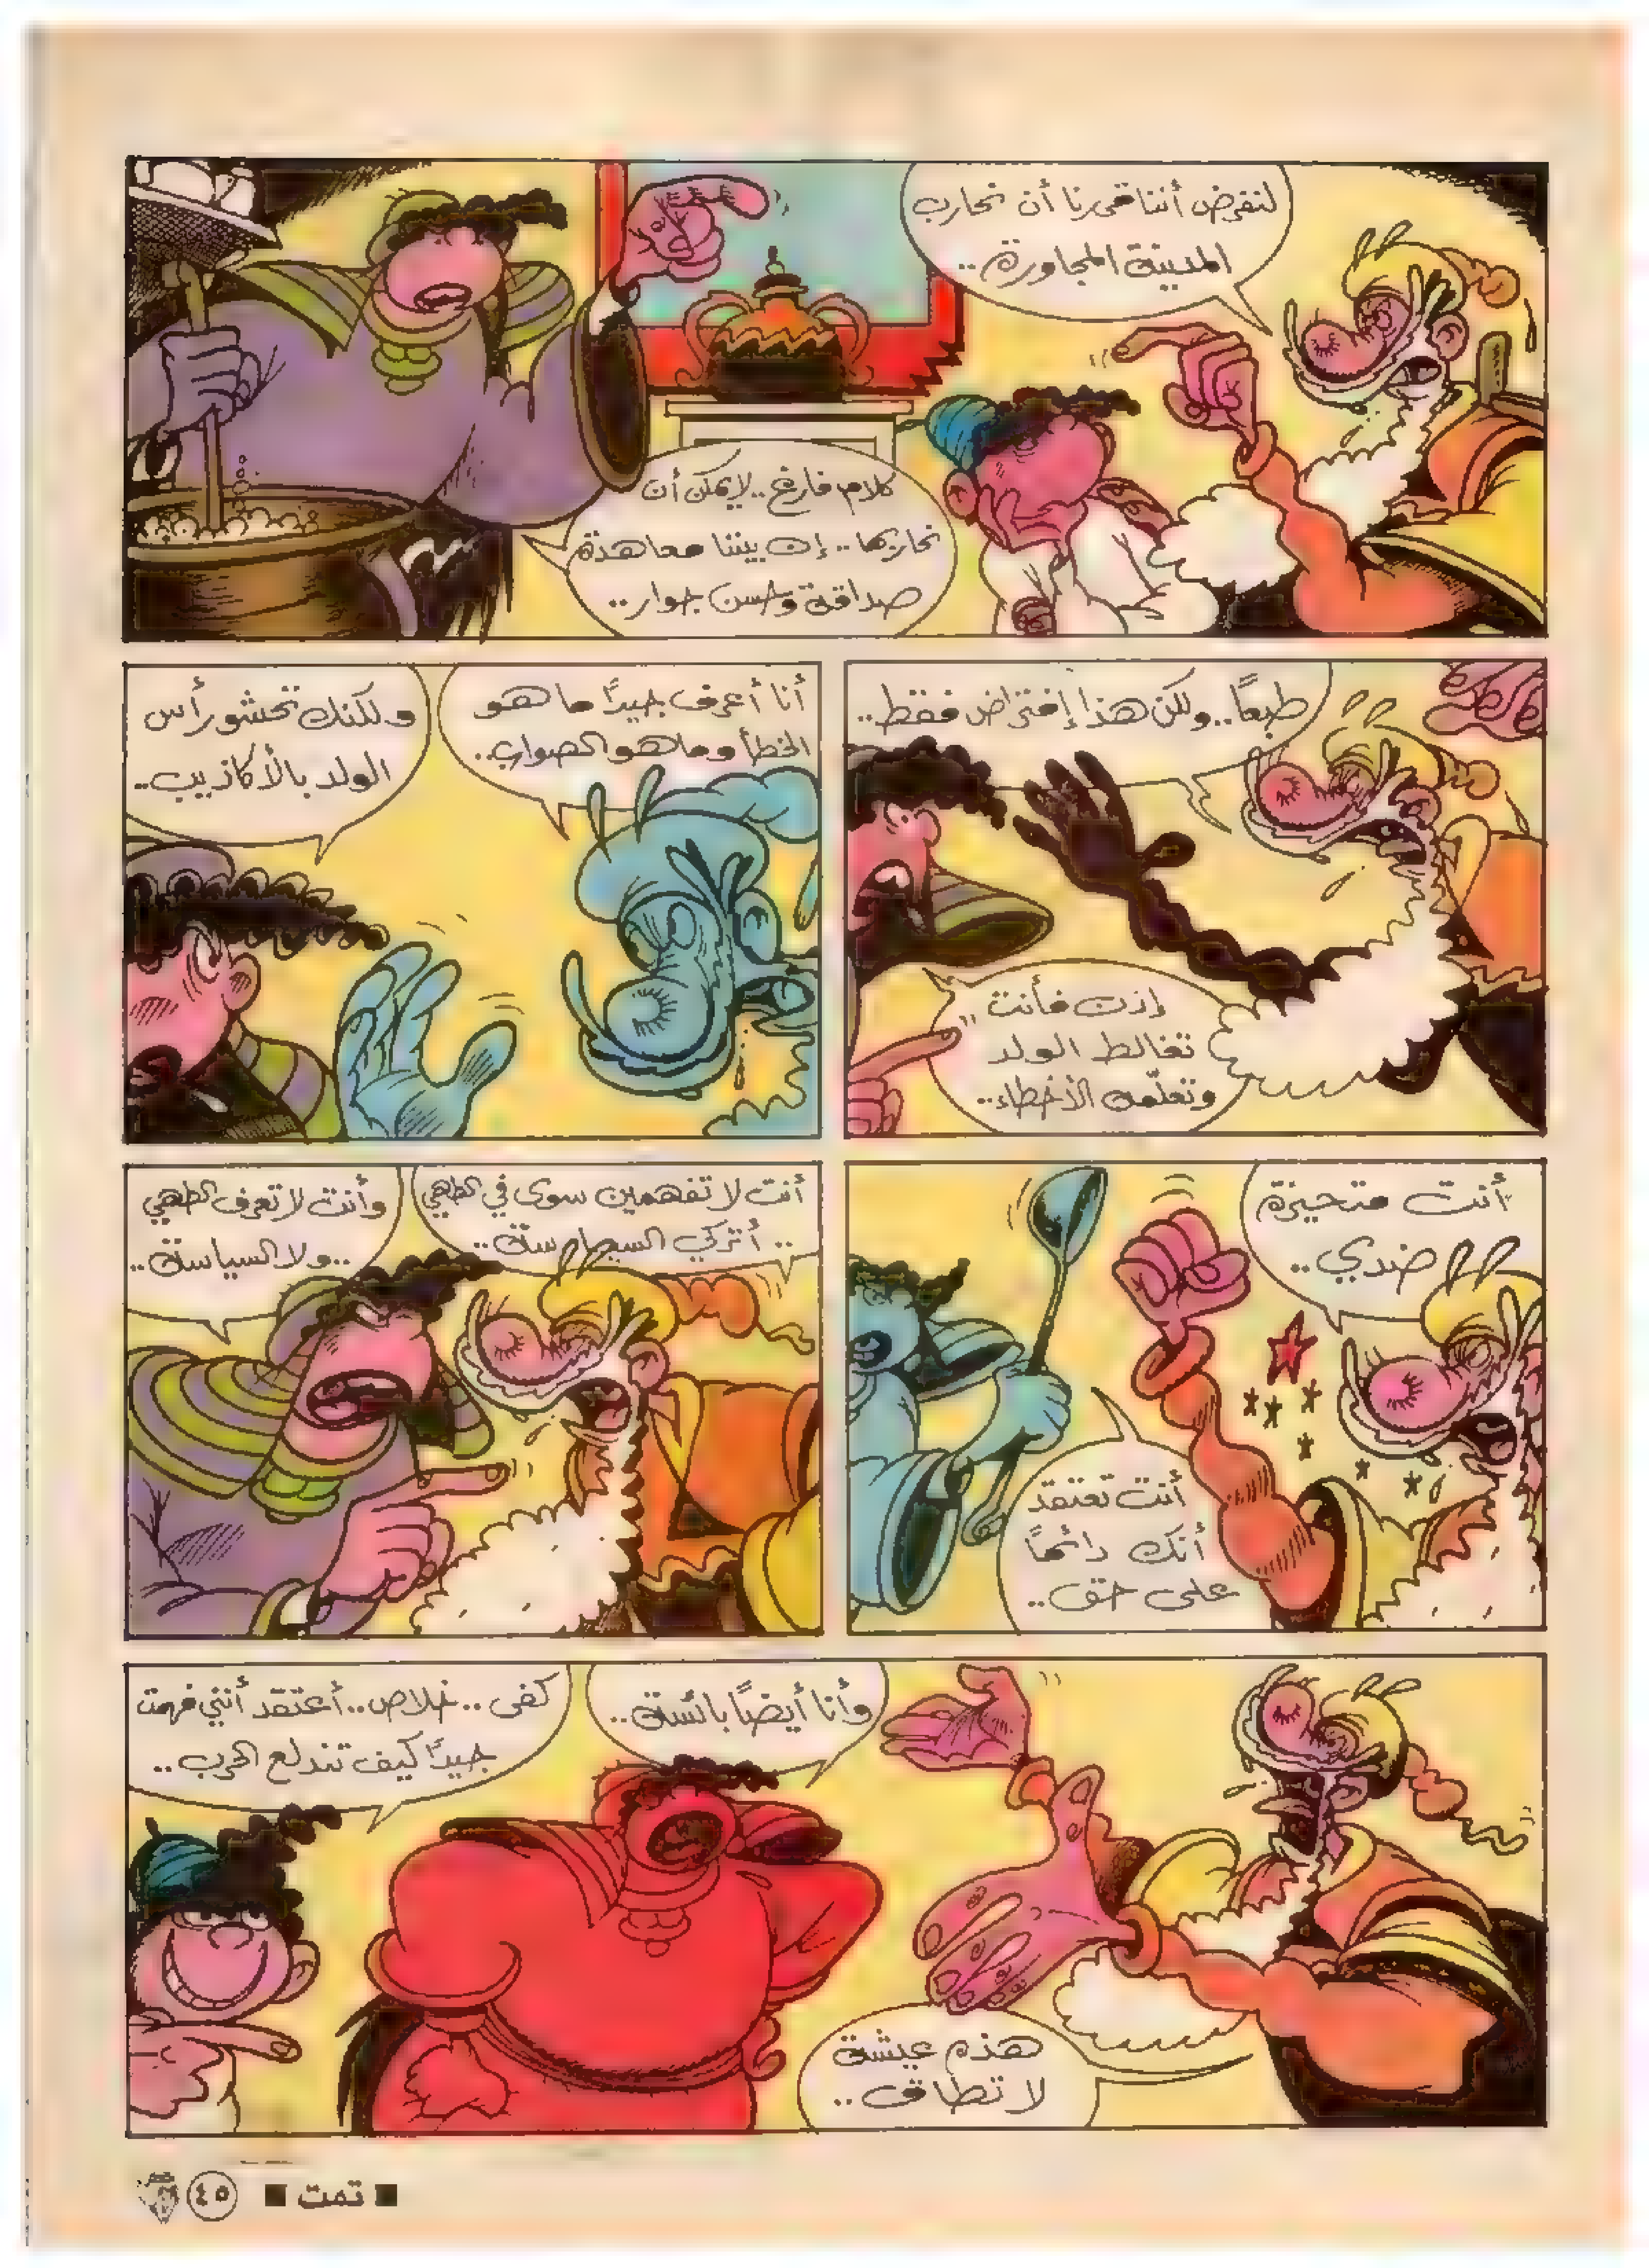 لنفرض أننا قررنا أن نحارب
المدينة المجاورة..
كلام فارغ.. لا يمكن أن
نحاربها.. إن بيننا معاهدة
صداقة وحسن جوار..
طبعًا.. ولكن هذا إفتراض فقط..
إذن فأنت
تغالط الولد
وتعلّمه الأخطاء..
أنا أعرف جيدًا ما هو
الخطأ وما هو الصواب..
ولكنك تحشو رأس
الولد بالأكاذيب..
أنت متحيزة
ضدي..
أنت تعتقد
أنك دائمًا
على حق..
أنت لا تفهمين سوى في الطهي
.. أتركي السياسة..
وأنت لا تعرف الطهي
..ولا السياسة..
هذه عيشة
لا تطاق..
وأنا أيضًا بائسة..
كفى.. خلاص.. أعتقد أنني فهمت
جيدًا كيف تندلع الحرب..
■ تمت ■
٤٥